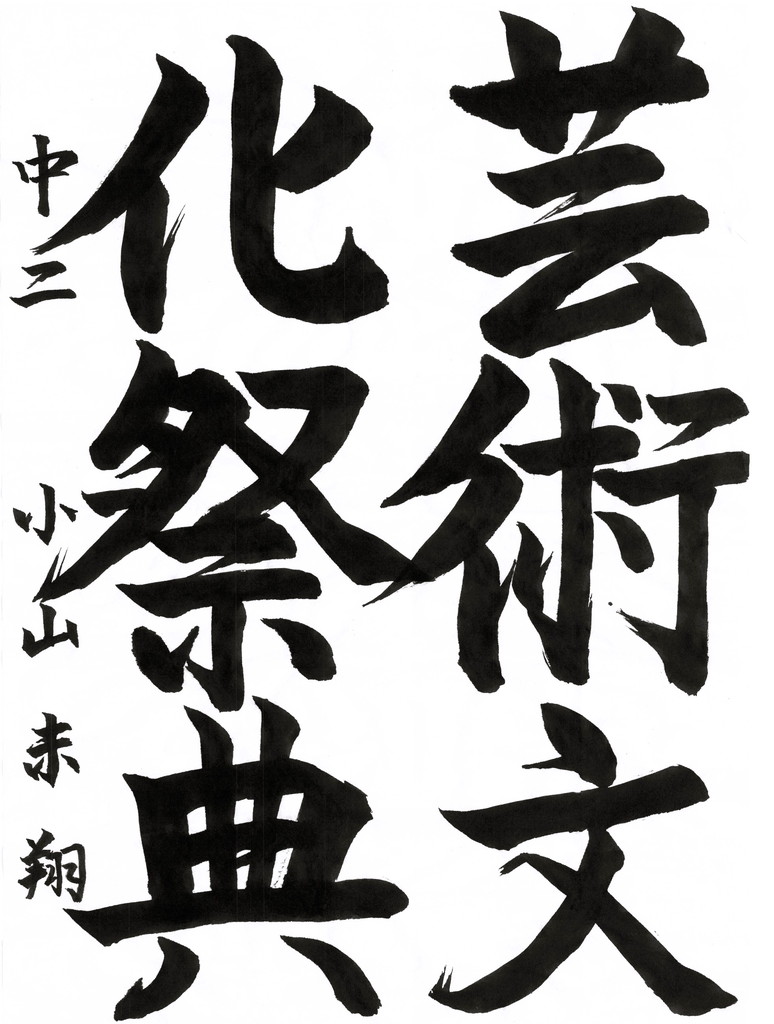 芸術文
化祭典
中二 小山未翔